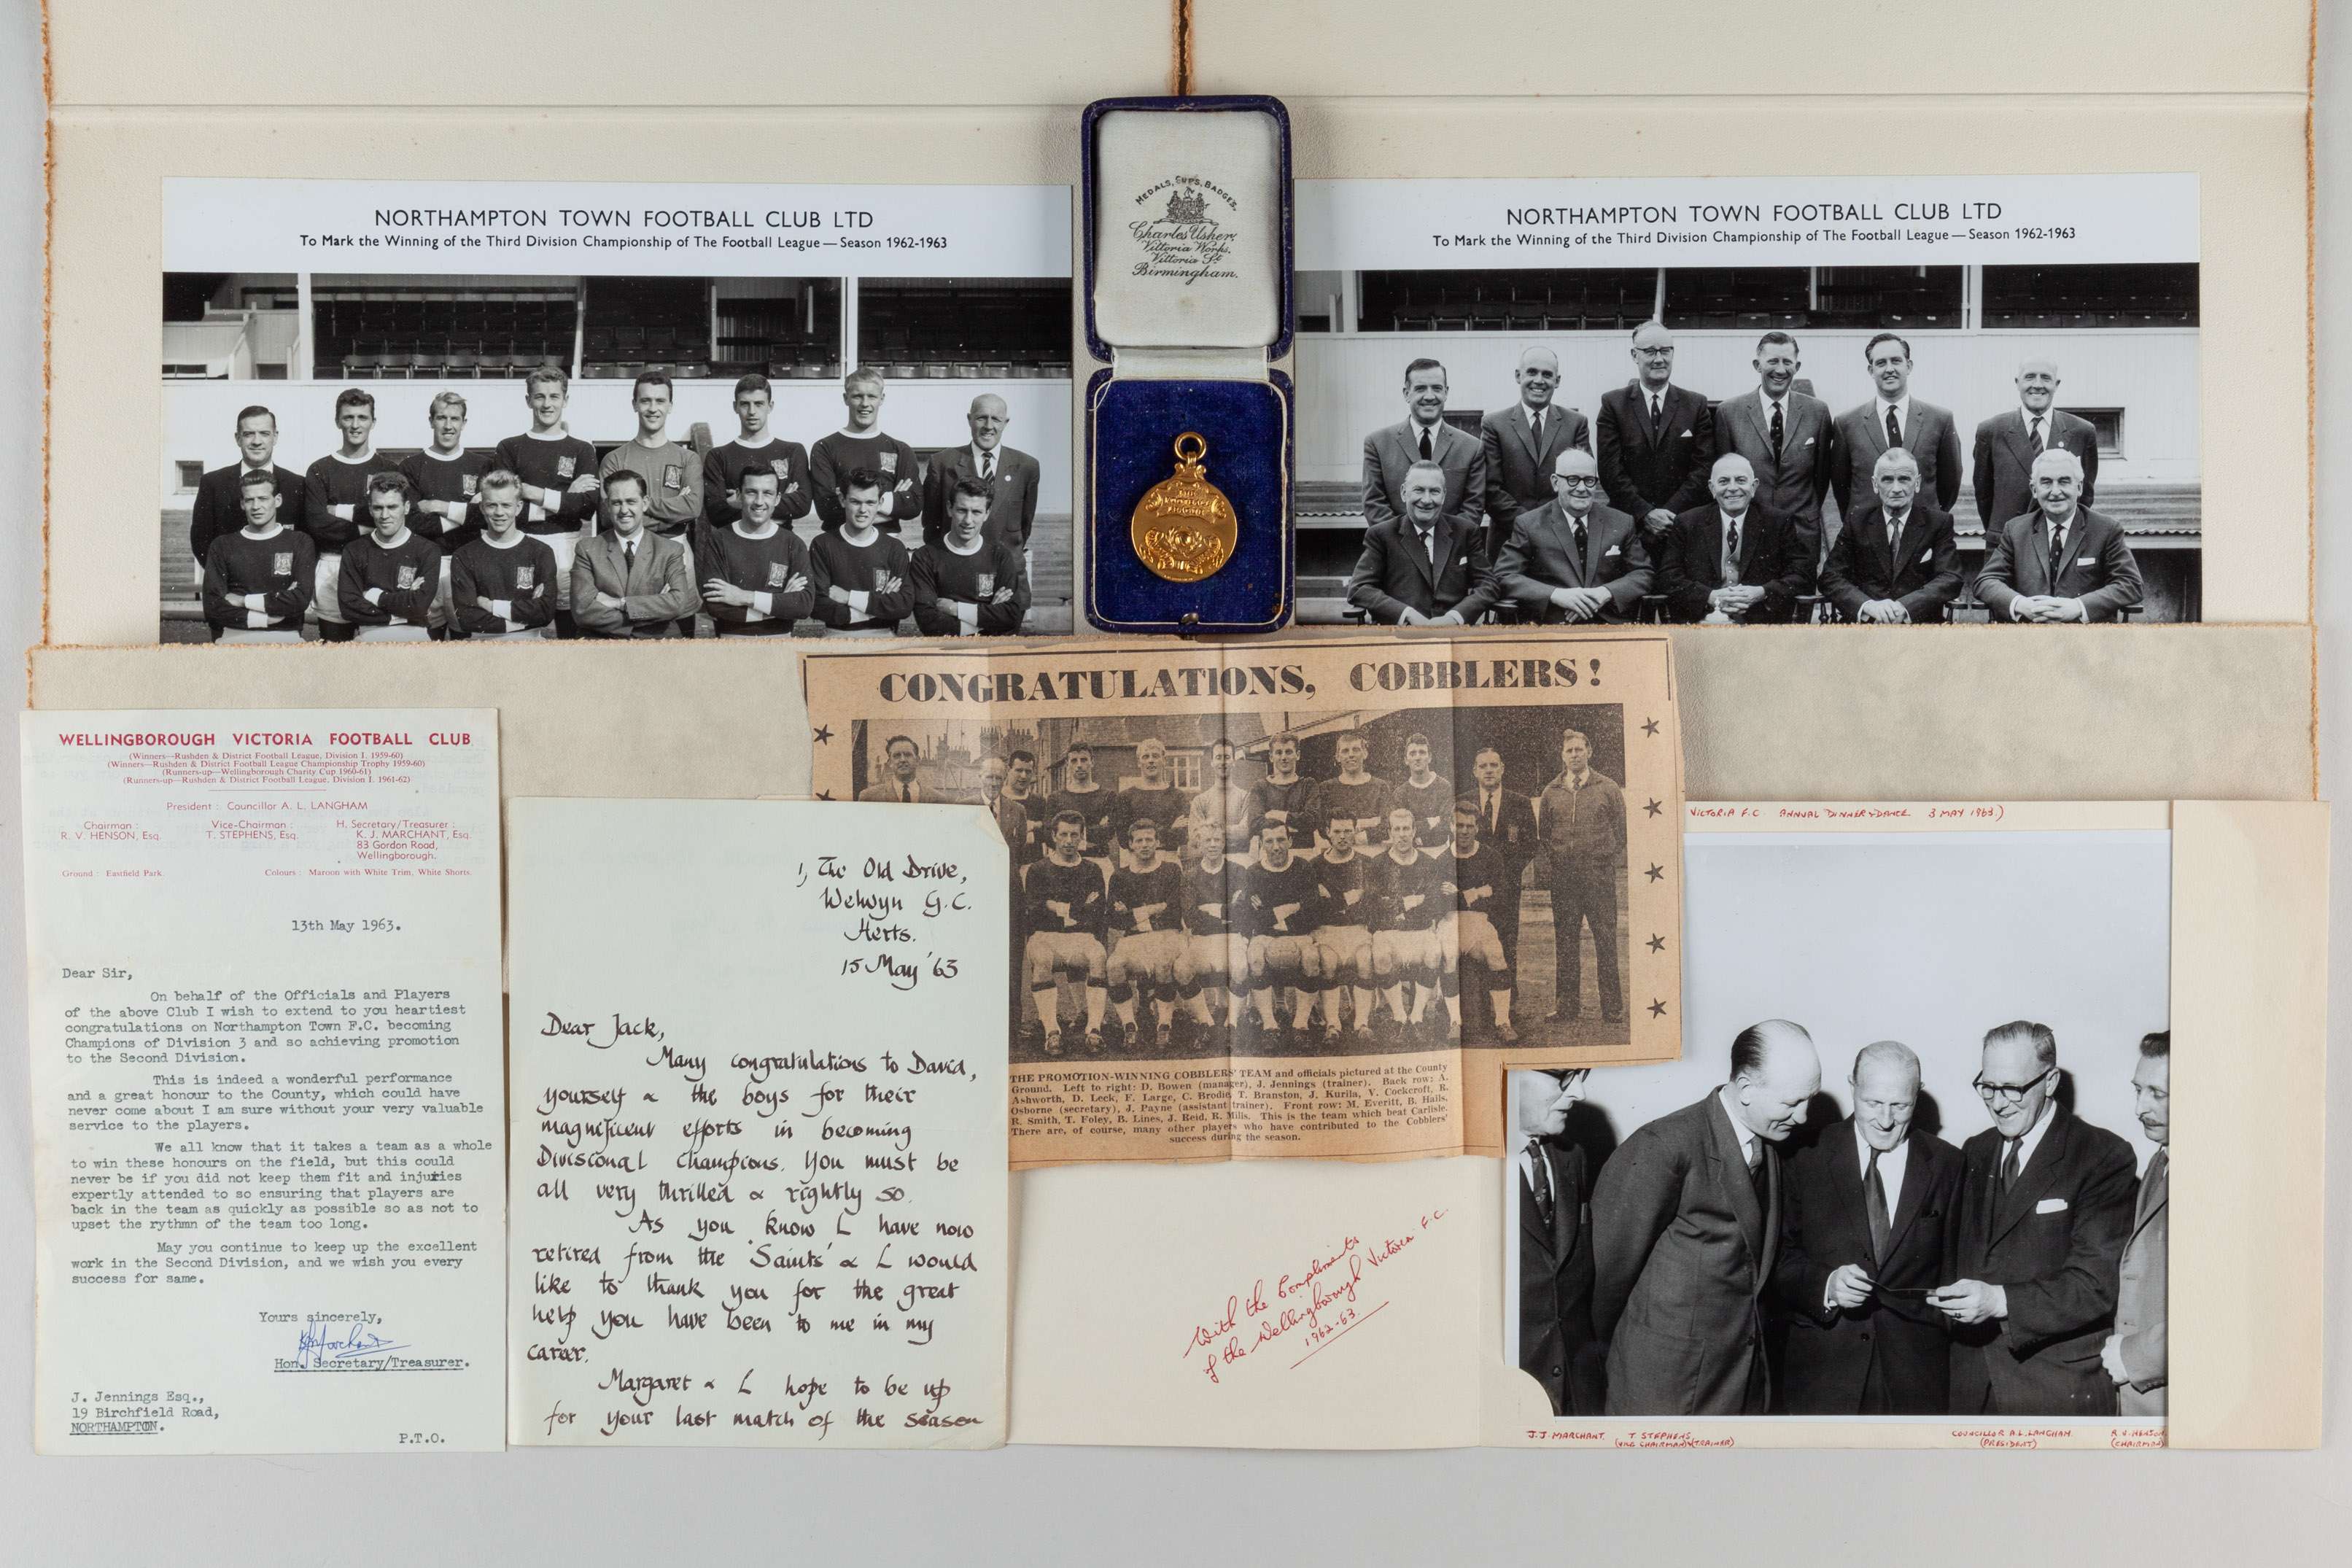 NORTHAMPTON TOWN FOOTBALL CLUB LTD
To Mark the Winning of the Third Division Championship of The Football League — Season 1962-1963
MEDALS, CUPS, BADGES,
Charles Usher,
Vittoria Works,
Vittoria St
Birmingham.
THE
FOOTBALL
LEAGUE
NORTHAMPTON TOWN FOOTBALL CLUB LTD
To Mark the Winning of the Third Division Championship of The Football League — Season 1962-1963
CONGRATULATIONS, COBBLERS!
THE PROMOTION-WINNING COBBLERS' TEAM and officials pictured at the County
Ground. Left to right: D. Bowen (manager), J. Jennings (trainer). Back row: A.
Ashworth, D. Leck, F. Large, C. Brodie, T. Branston, J. Kurila, V. Cockcroft, R.
Osborne (secretary), J. Payne (assistant trainer). Front row: M. Everitt, B. Hails,
R. Smith, T. Foley, B. Lines, J. Reid, R. Mills. This is the team which beat Carlisle.
There are, of course, many other players who have contributed to the Cobblers'
success during the season.
WELLINGBOROUGH VICTORIA FOOTBALL CLUB
(Winners—Rushden & District Football League, Division I. 1959-60)
(Winners—Rushden & District Football League Championship Trophy 1959-60)
(Runners-up—Wellingborough Charity Cup 1960-61)
(Runners-up—Rushden & District Football League, Division I. 1961-62)
President : Councillor A. L. LANGHAM
Chairman : Vice-Chairman : H. Secretary/Treasurer :
R. V. HENSON, Esq. T. STEPHENS, Esq. K. J. MARCHANT, Esq.
83 Gordon Road,
Wellingborough.
Ground : Eastfield Park. Colours : Maroon with White Trim, White Shorts.
13th May 1963.
Dear Sir,
On behalf of the Officials and Players
of the above Club I wish to extend to you heartiest
congratulations on Northampton Town F.C. becoming
Champions of Division 3 and so achieving promotion
to the Second Division.
This is indeed a wonderful performance
and a great honour to the County, which could have
never come about I am sure without your very valuable
service to the players.
We all know that it takes a team as a whole
to win these honours on the field, but this could
never be if you did not keep them fit and injuries
expertly attended to so ensuring that players are
back in the team as quickly as possible so as not to
upset the rythmn of the team too long.
May you continue to keep up the excellent
work in the Second Division, and we wish you every
success for same.
Yours sincerely,
KJMarchant
Hon. Secretary/Treasurer.
J. Jennings Esq.,
19 Birchfield Road,
NORTHAMPTON.
P.T.O.
1, The Old Drive,
Welwyn G.C.
Herts.
15 May '63
Dear Jack,
Many congratulations to David,
yourself & the boys for their
magnificent efforts in becoming
Divisional champions. You must be
all very thrilled & rightly so.
As you know I have now
retired from the 'Saints' & I would
like to thank you for the great
help you have been to me in my
career.
Margaret & I hope to be up
for your last match of the season
With the Compliments
of the Wellingborough Victoria F.C.
1962-63.
VICTORIA F.C. ANNUAL DINNER & DANCE 3 MAY 1963.)
J.J. MARCHANT. T STEPHENS COUNCILLOR A.L. LANGHAM R.V. HENSON
(VICE CHAIRMAN & TRAINER) (PRESIDENT) (CHAIRMAN)